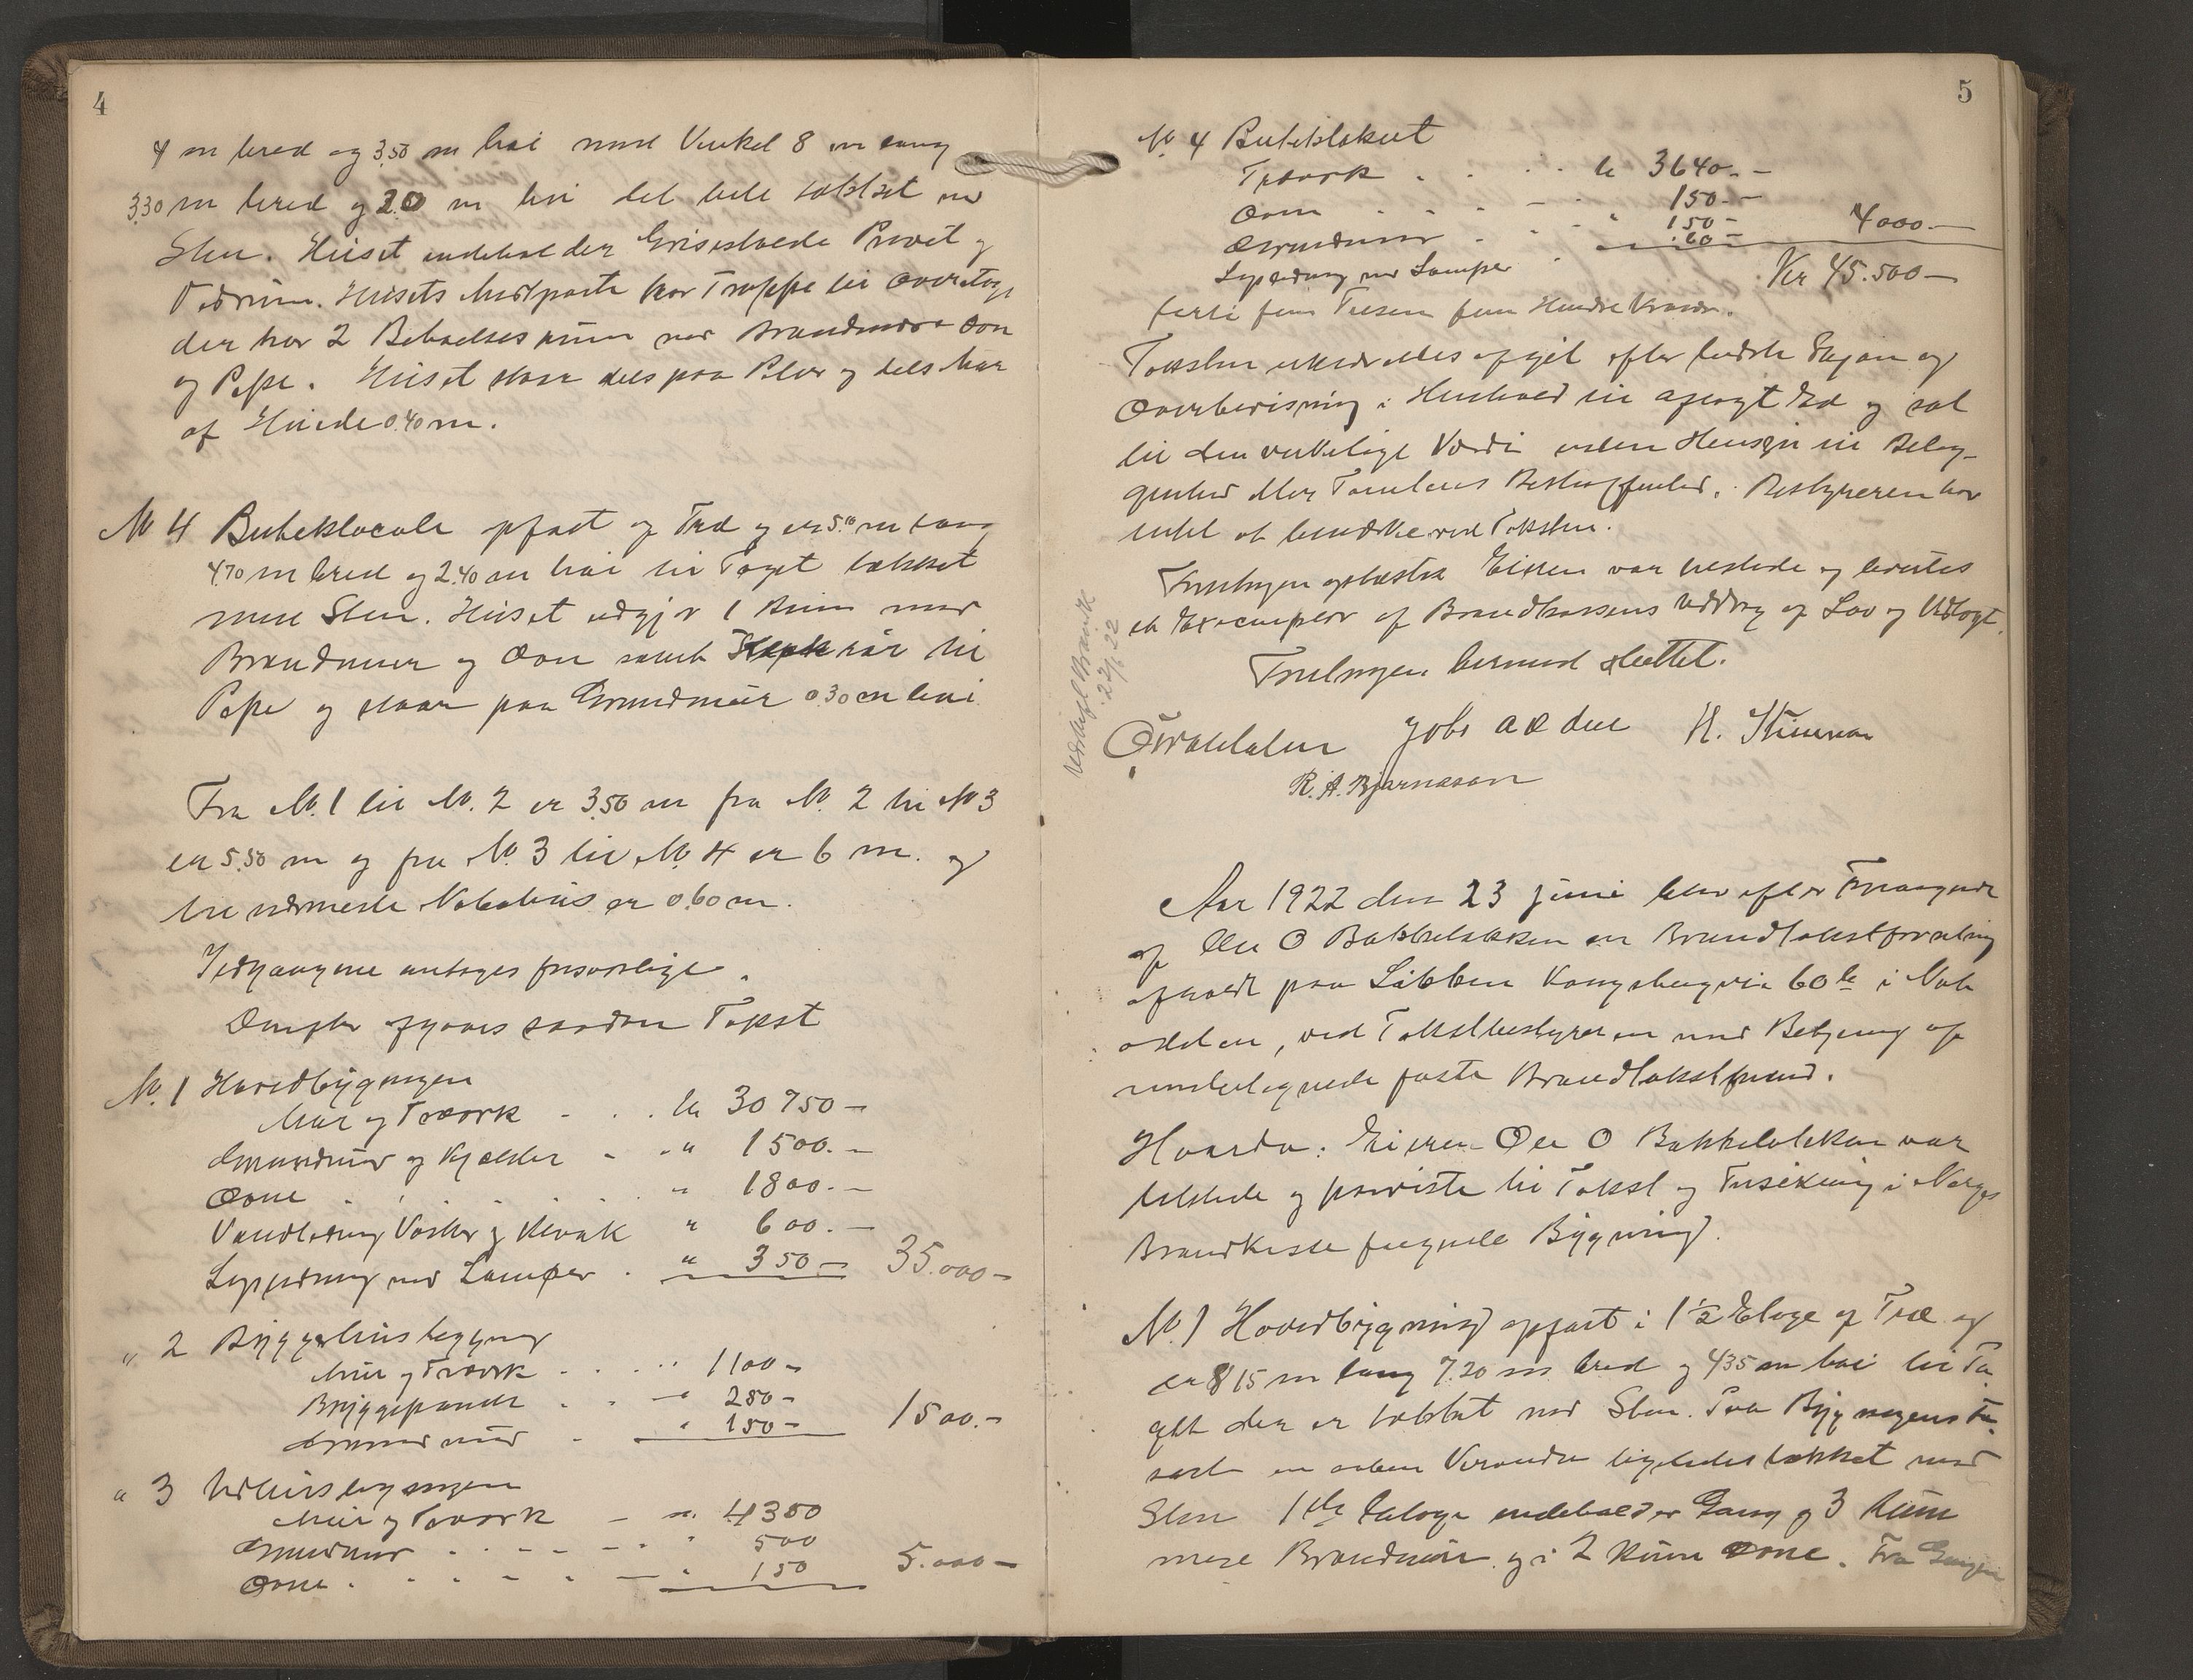 4
4 m bred og 3.50 m høi med Vinkel 8 m lang
3.30 m bred og 2.0 m høi det hele tækket m
Sten. Huset indeholder Grisestalde Privet og
Vedrum. Husets Midtparti har Trappe til Overetage
der har 2 Beboelsesrum med Brandmur Ovn
og Pipe. Huset staar dels paa Pilar og dels Mur
af Høide 0.40 m.
No 4 Butiklocale opført af Træ og er 5.10 m lang
4.70 m bred og 2.40 m høi til Taget tækket
med Sten. Huset udgjør 1 Rum med
Brandmur og Ovn samt rør til
Pipe og staar paa Grundmur 0.30 m høi
Fra No. 1 til No. 2 er 3.50 m fra No. 2 til No 3
er 5.50 m og fra No. 3 til No. 4 er 6 m. og
til nærmeste Nabohus er 0.60 m.
Ildgangene antages forsvarlige.
Derefter afgaves saadan Takst
No. 1 Hovedbygningen
Mur og Træverk . . . kr 30750 -
Grundmur og Kjælder - . " 1500. -
Ovne . . . . . " 1800. -
Vandledning Vasker og Kloak " 600. -
Lysledning med Lamper . " 350 - 35.000 -
" 2 Bryggerhusbygning
Mur og Træverk . . . " 1100 -
Bryggepande . . - " 250 -
Grundmur - " 150 - 1500. -
" 3 Udhusbygningen
Mur og Træverk - " 4350
Grundmur . . - - - " 500
Ovne . . . - - - " 150 5.000 -
5
No. 4 Butiklokalet
Træverk . . . . kr 3640. -
Ovn . . . - - 150. -
Grundmur . . . " 150 - 4000. -
Lysledning med Lamper " 60 -
Kr 45.500 -
førti fem Tusen fem Hundre Kroner.
Taksten ansættes afgit efter bedste Skjøn og
Overbevisning i Henhold til aflagt Ed og sat
til den virkelige Værdi uden Hensyn til Belig-
genhed eller Tomtens Beskaffenhed. Bestyreren har
intet at bemærke ved Taksten.
Forretningen oplæstes Eieren var tilstede og leveres
et Exemplar af Brandkassens Uddrag af Lov og Udtog.
Forretningen hermed sluttet.
R. A. Bjarnason
22
Aar 1922 den 23 juni blev efter Forlangende
af Ole O Bakkeløkken en Brandtakstforretning
afholdt paa Løkken Kongsbergvei 60 b i Noto
odden, ved Takstbestyreren med Betjening af
undertegnede faste Brandtakstmænd.
Hvorda: Eieren Ole O Bakkeløkken var
tilstede og paaviste til Takst og Forsikring i Norges
Brandkasse følgende Bygning.
No. 1 Hovedbygning opført i 1 1/2 Etage af Træ og
er 8.15 m lang 7.20 m bred og 4.35 m høi til Ta
get der er tækket med Sten. Paa Bygningens Fa
sade en aaben Veranda ligeledes tækket med
Sten 1ste Etage indeholder Gang og 3 Rum
med Brandmur og i 2 Rum Ovne. Fra Gangen